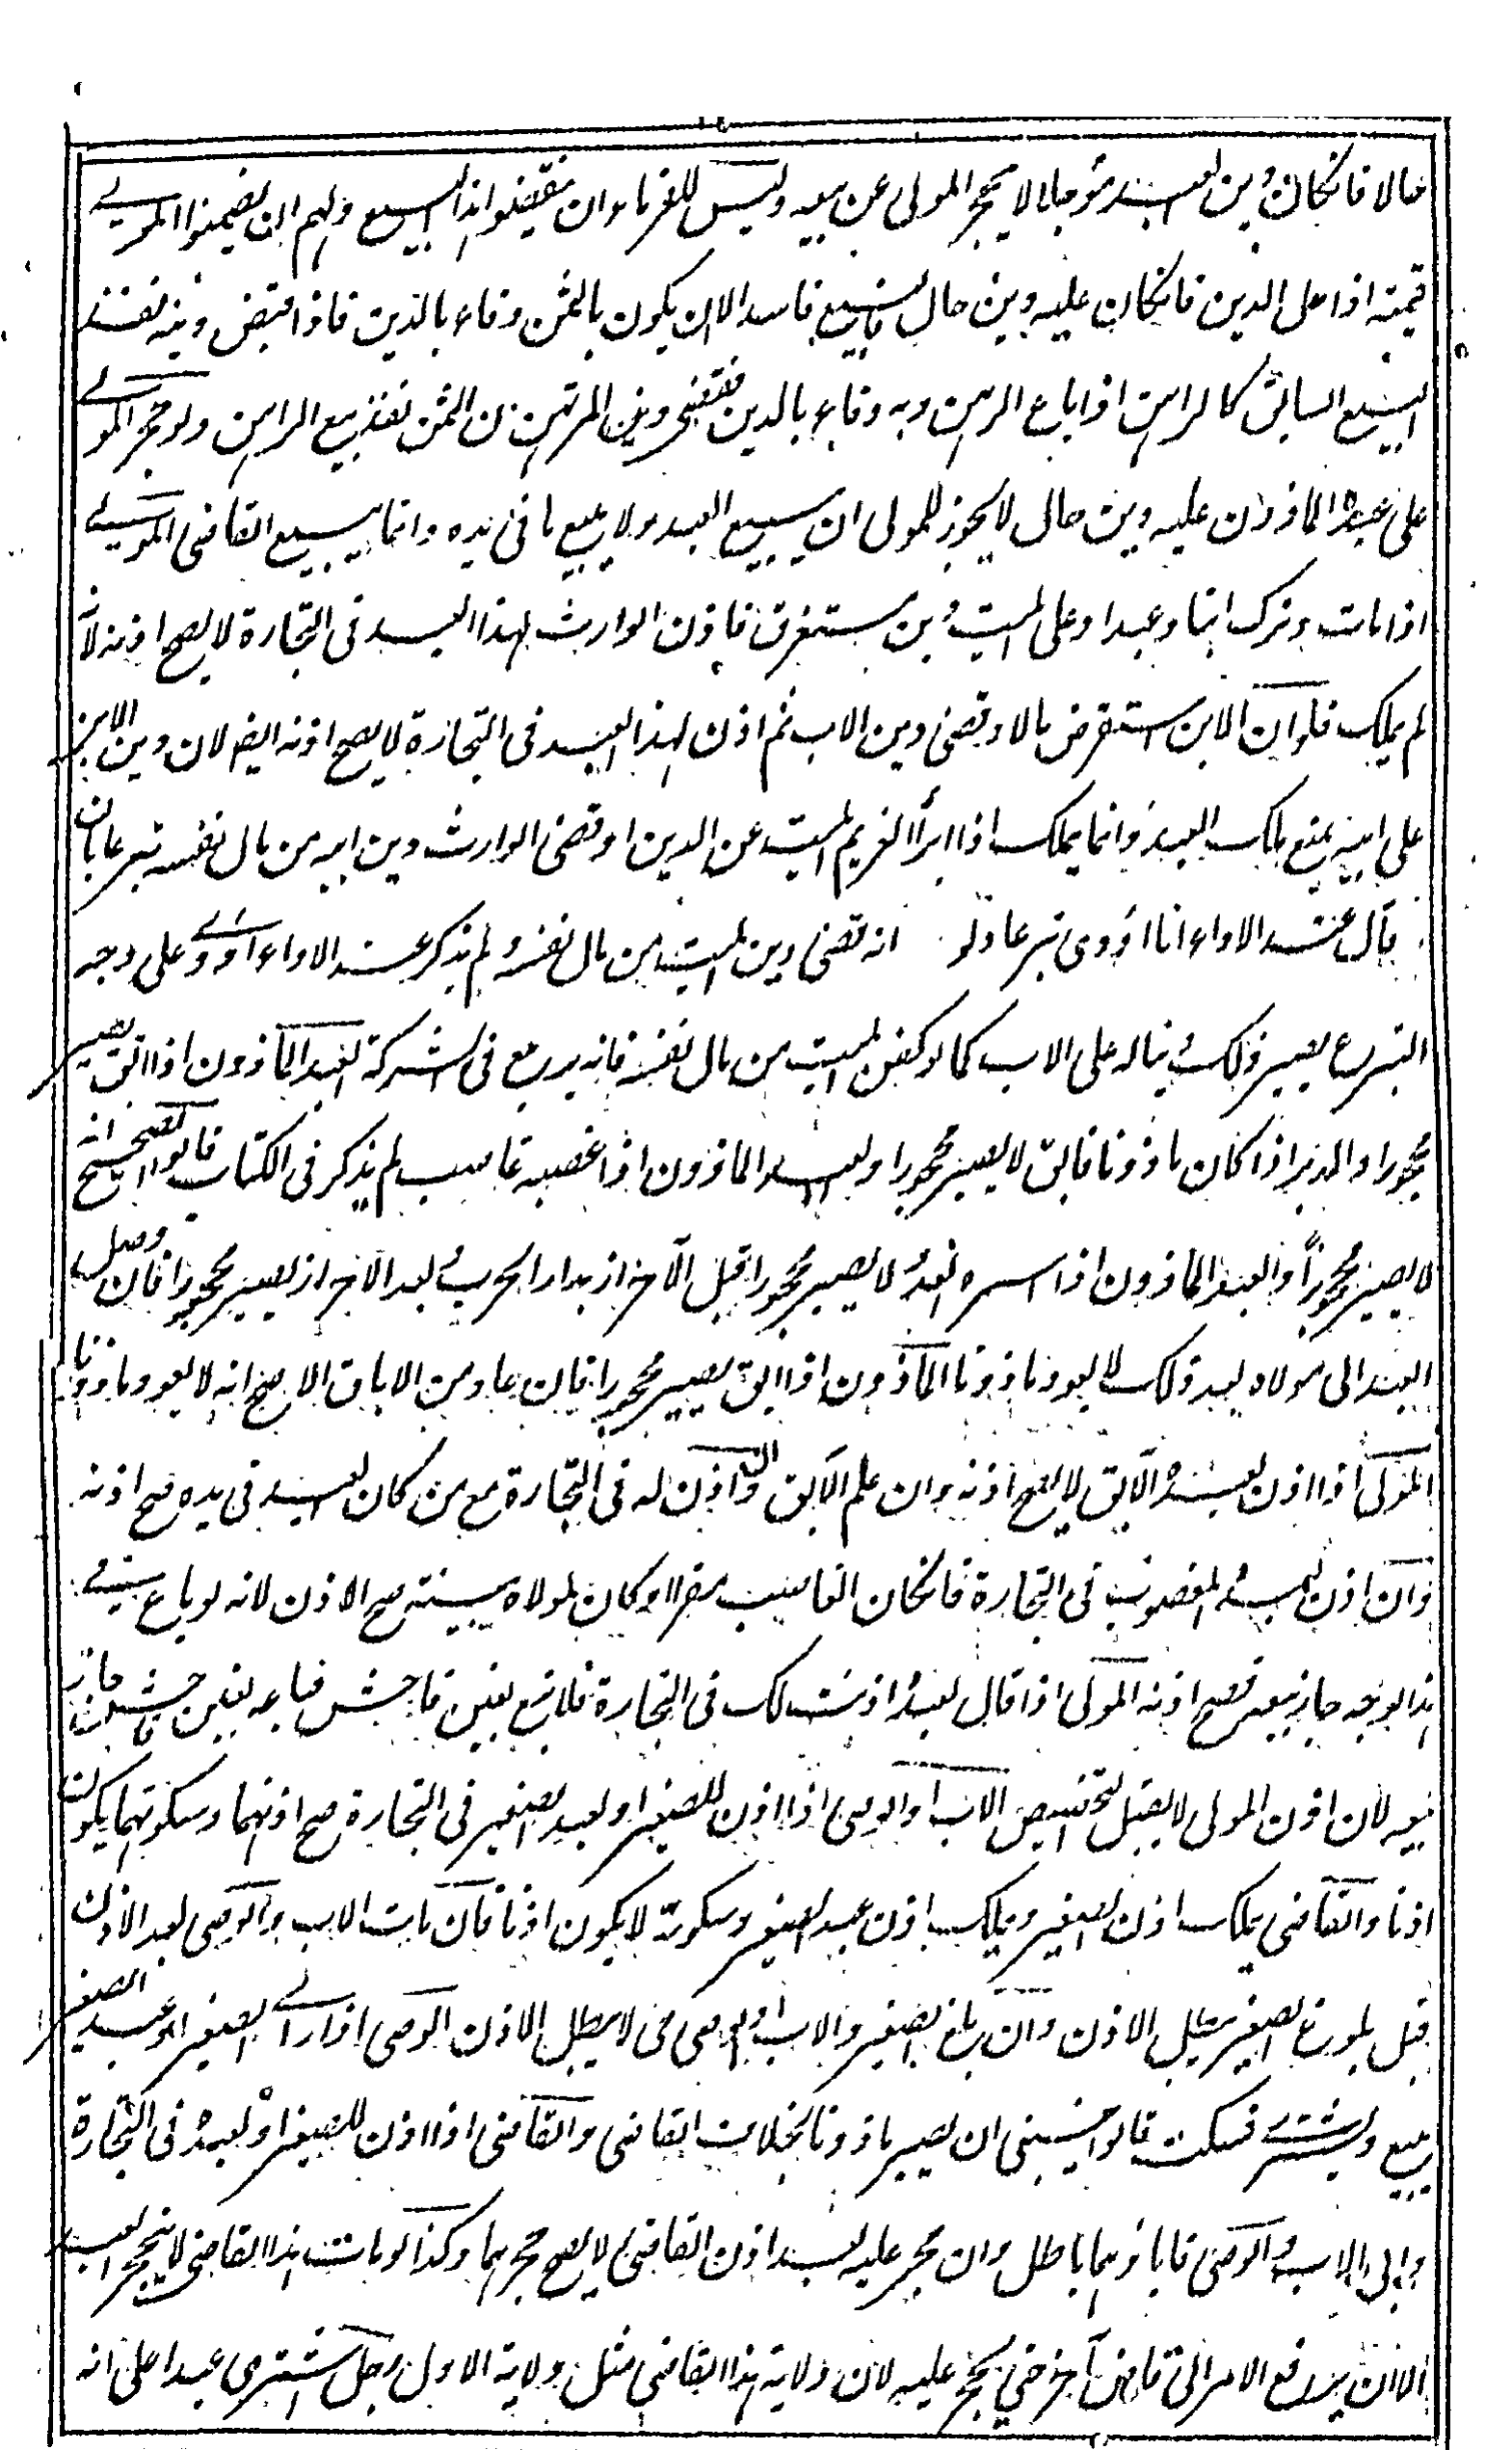 حالا فان كان دين العبد مؤجلا لا يحجر المولى عن بيعه وليس للغرماء ان ينقضوا هذا البيع ولهم ان يضمنوا المولى
قيمته اذا حل الدين فان كان عليه دين حال فالبيع فاسد الا ان يكون بالثمن وفاء بالدين فاذا قبض دينه نفذ
البيع السابق كالراهن اذا باع الرهن وبه وفاء بالدين فقضى دين المرتهن من الثمن نفذ بيع الراهن ولو حجر المولى
على عبده الماذون عليه دين حال لا يجوز للمولى ان يبيع العبد ولا يبيع ما فى يده وانما يبيع القاضى المولى
اذا مات وترك ابنا وعبدا وعلى الميت دين مستغرق فاذن الوارث لهذا العبد فى التجارة لا يصح اذنه لانه
لم يملك فلو ان الابن استقرض مالا وقضى دين الاب ثم اذن لهذا العبد فى التجارة لا يصح اذنه ايضا لان دين الابن
على ابيه يمنع ملك العبد وانما يملك اذا ابرأ الغريم الميت عن الدين او قضى الوارث دين ابيه من مال نفسه تبرعا بان
قال عند الاداء انا اؤدى تبرعا ولو انه قضى دين الميت من مال نفسه ولم يذكر عند الاداء اؤدى على وجه
التبرع يصير ذلك ديناله على الاب كما لو كفن الميت من مال نفسه فانه يرجع فى التركة العبد الماذون اذا ابق يصير
محجورا والمدبر اذا كان ماذونا فابق لا يصير محجورا والعبد الماذون اذا غصبه غاصب لم يذكر فى الكتاب قالوا الصحيح انه
لا يصير محجورا والعبد الماذون اذا اسره العدو لا يصير محجورا قبل الاحراز بدار الحرب وبعد الاحراز يصير محجورا فان وصل
العبد الى مولاه بعد ذلك لا يعود ماذونا الماذون اذا ابق يصير محجورا فان عاد من الاباق الاصح انه لا يعود ماذونا
المولى اذا اذن لعبده الآبق لا يصح اذنه وان علم الآبق وان اذن له فى التجارة مع من كان العبد فى يده صح اذنه
وان اذن لعبده المغصوب فى التجارة فان كان الغاصب مقرا او كان لمولاه بينة صح الاذن لانه لو باع شىء
هذا الوجه جاز بيعه فصح اذنه المولى اذا قال لعبده اذنت لك فى التجارة فلا تبع بغبن فاحش فباعه بغبن فاحش جاز
بيعه لان اذن المولى لا يقبل التخصيص الاب او الوصى اذا اذن للصغير او لعبد الصغير فى التجارة صح اذنهما وسكوتهما يكون
اذنا والقاضى يملك اذن الصغير ويملك اذن عبد الصغير وسكوته لا يكون اذنا فان مات الاب والوصى بعد الاذن
قبل بلوغ الصغير يبطل الاذن وان بلغ الصغير والاب والوصى حى لا يبطل الاذن الوصى اذا رأى الصغير او عبد الصغير
يبيع ويشترى فسكت قالوا ينبغى ان يصير ماذونا بخلاف القاضى والقاضى اذا اذن للصغير او لعبده فى التجارة
وابى الاب والوصى فاباؤهما باطل وان حجر عليه بعد اذن القاضى لا يصح حجرهما وكذا لو مات هذا القاضى لا ينحجر العبد
الا ان يرفع الامر الى قاض آخر حتى يحجر عليه لان ولاية هذا القاضى مثل ولاية الاول رجل اشترى عبدا على انه